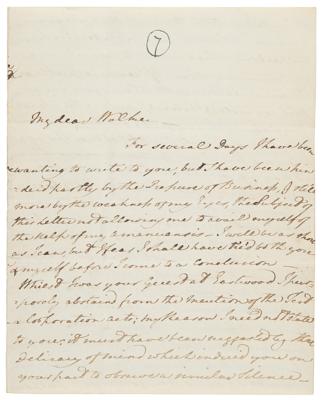 7
My dear Walker
For several Days I have been
wanting to write to you, but I have been hin
dered partly by the Pressure of Business, & still
more by the weakness of my Eyes, the Subject of
this Letter not allowing me to avail myself of
the help of my Amanuensis. I will be as short
as I can, but I fear I shall have tired both you
& myself before I come to a Conclusion
Whilst I was your Guest at Eastwood I pur-
posely abstain from the mention of the Test
& Corporation Acts; my Reason I need not state
to you; it must have been suggested by the
Delicacy of mind which induced you on
your part to observe a similar Silence